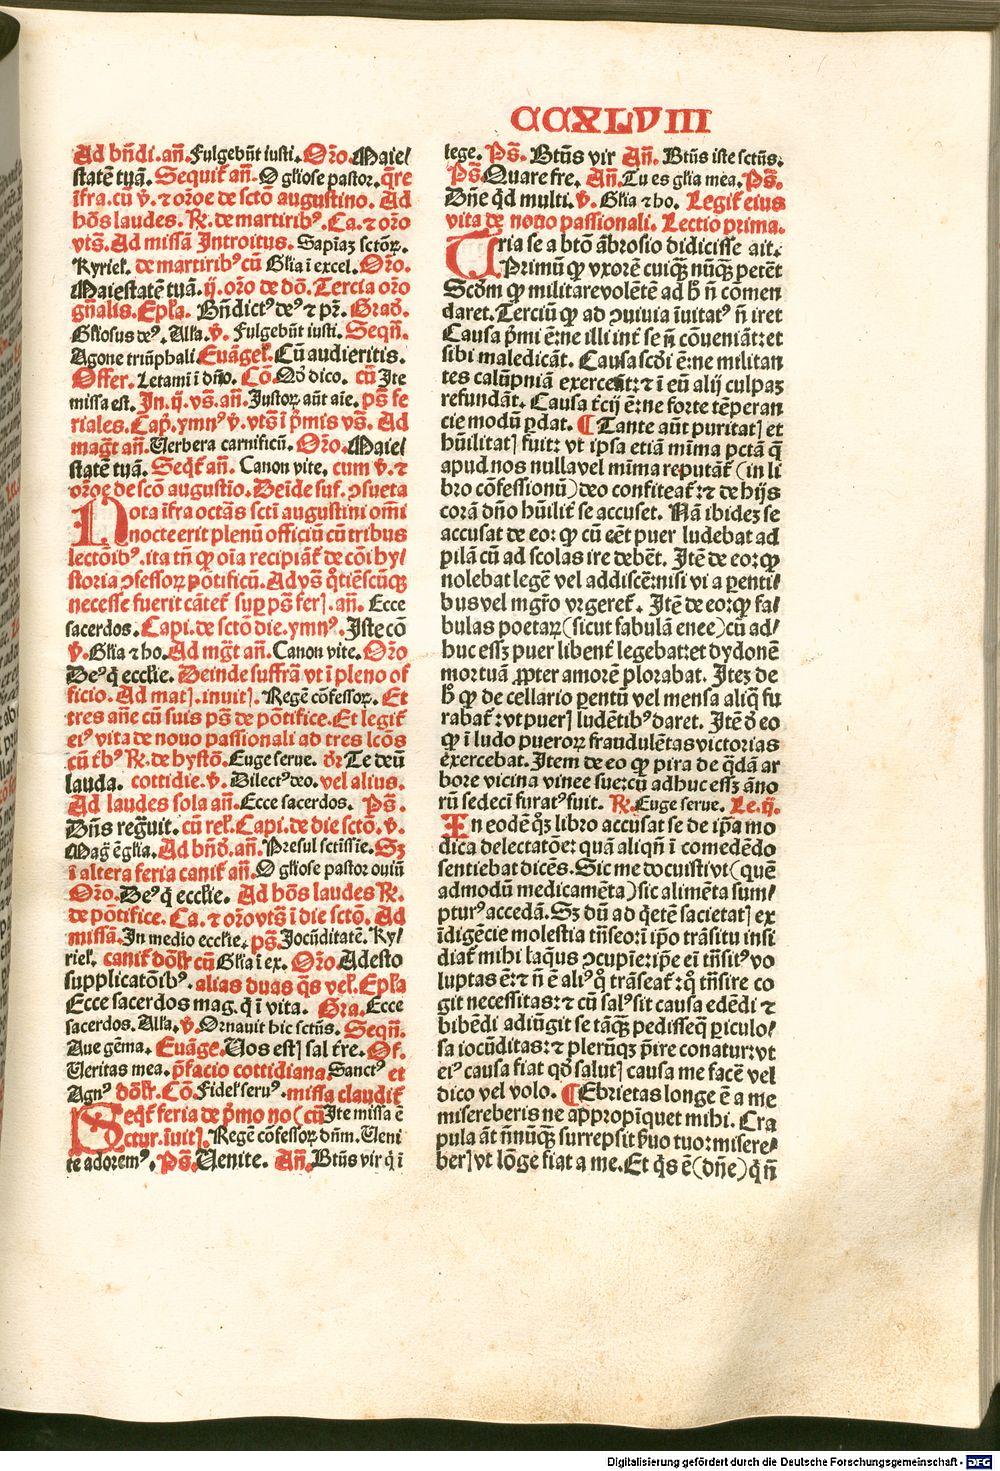 CCXLVIII
Ad bn̄di. an̄. Fulgebūt iusti. Or̄o. Maie/
statē tuā. Sequit᷑ an̄. O gl̄iose pastor. q̄re
īfra. cū v̄. ⁊ or̄oe de scto augustino. Ad
hōs laudes. R̄. de martiribꝰ. Ca. ⁊ or̄o
vts̄. Ad missā Introitus. Sapīaꝫ sctōꝝ.
Kyriel᷑. de martiribꝰ cū Gl̄ia ī excel. Or̄o.
Maiestatē tuā. ij. or̄o de dō. Tercia or̄o
gn̄alis. Epl̄a. Bn̄dictꝰ deꝰ ⁊ pr̄. Grad̄.
Gl̄iosus deꝰ. Alla. v̄. Fulgebūt iusti. Seqn̄.
Agone triūphali. Euāgel᷑. Cū audieritis.
Offer. Letami ī dn̄o. Cō. Qd̄ dico. cū Ite
missa est. In. ij. vs̄. an̄. Iustoꝝ aūt aīe. ps̄ fe
riales. Cap̄. ymnꝰ v̄. vts̄ ī p̄mis vs̄. Ad
maḡt an̄. Verbera carnificū. Or̄o. Maie/
statē tuā. Seq̄t᷑ an̄. Canon vite. cum v̄. ⁊
or̄oe de scō augustīo. Deīde suf. ꝯsueta
Nota īfra octās scti augustini om̄i
nocte erit plenū officiū cū tribus
lectōibꝰ. ita tn̄ ꝙ oīa recipiāt᷑ de cōi hy/
storia ꝯfessoꝝ pōtificū. Ad vs̄ q̄tiēscūqꝫ
necesse fuerit cātet᷑ suꝑ ps̄ ferꝭ. an̄. Ecce
sacerdos. Capi. de sctō die. ymnꝰ. Iste cō
v̄. Gl̄ia ⁊ ho. Ad mḡt an̄. Canon vite. Or̄o
Deꝰ q̄ eccl̄ie. Deinde suffrā vt ī pleno of
ficio. Ad matꝭ. inuitꝭ. Regē cōfessoꝝ. Et
tres an̄e cū suis ps̄ de pōtifice. Et legit᷑
eiꝰ vita de nouo passionali ad tres lcōs
cū t̄bꝰ R̄. de hystō. Euge serue. dr̄ Te deū
lauda. cottidie. v̄. Dilectꝰ deo. vel alius.
Ad laudes sola an̄. Ecce sacerdos. Ps̄.
Dn̄s regn̄uit. cū rel᷑. Capi. de die sctō. v̄.
Maḡ ē gl̄ia. Ad bn̄d̄. an̄. Presul sctissīe. Sꝫ
ī altera feria canit᷑ an̄. O gl̄iose pastor ouiū
Or̄o. Deꝰ q̄ eccl̄ie. Ad hōs laudes R̄.
de pōtifice. Ca. ⁊ or̄o vts̄ ī die sctō. Ad
missā. In medio eccl̄ie. ps̄. Iocūditatē. Ky/
riel᷑. canit᷑ dōl᷑r cū Gl̄ia ī ex. Or̄o. Adesto
supplicatōibꝰ. alias duas q̄s vel᷑. Epl̄a
Ecce sacerdos mag. q̄ ī vita. Gra. Ecce
sacerdos. Alla. v̄. Ornauit hic sctūs. Seqn̄.
Aue gēma. Euāge. Vos estꝭ sal tr̄e. Of.
Veritas mea. p̄facio cottidiana. Sanctꝰ et
Agnꝰ dōl᷑r. Cō. Fidel᷑ seruꝰ. missa claudit᷑
Seqt᷑ feria de p̄mo no (cū Ite missa ē
ctur. īuitꝭ. Regē cōfessoꝝ dn̄m. Veni
te adoremꝰ. Ps̄. Venite. An̄. Btūs vir q̄ ī
lege. Ps̄. Btūs vir An̄. Btūs iste sctūs.
Ps̄. Quare fre. An̄. Tu es gl̄ia mea. Ps̄.
Dn̄e q̄d multi. v̄. Gl̄ia ⁊ ho. Legit᷑ eius
vita de nouo passionali. Lectio prima.
Tria se a btō ābrosio didicisse ait.
Primū ꝙ vxorē cuiqꝫ nūqꝫ petēt
Scdm ꝙ militare volētē ad h̄ n̄ cōmen
daret. Terciū ꝙ ad ꝯuiuia īuitatꝰ n̄ iret
Causa p̄mi ē: ne illi int᷑ se n̄ cōueniāt: et
sibi maledicāt. Causa scdi ē: ne militan
tes calūpniā exerceāt: ⁊ ī eū alij culpaꝫ
refundāt. Causa t᷑cij ē: ne forte tēperan
cie modū ꝑdat. ¶ Tante aūt puritatꝭ et
hūilitatꝭ fuit: vt ipsa etiā mīma pctā q̄
apud nos nulla vel mīma reputāt᷑ (in li
bro cōfessionū) deo confiteat᷑: ⁊ de hijs
corā dn̄o hūilit᷑ se accuset. Nā ibideꝫ se
accusat de eo: ꝙ cū eēt puer ludebat ad
pilā cū ad scolas ire debēt. Itē de eo: ꝙ
nolebat legē vel addiscē: nisi vi a ꝑenti/
bus vel mgr̄o vrgeret᷑. Itē de eo: ꝙ fa/
bulas poetaꝝ (sicut fabulā enee) cū ad/
huc eēꝫ puer libent᷑ legebat: et dydonē
mortuā ꝓpter amorē plorabat. Iteꝫ de
h̄ ꝙ de cellario ꝑentū vel mensa aliq̄ fu
rabat᷑: vt puerꝭ ludētibꝰ daret. Itē d̄ eo
ꝙ ī ludo pueroꝝ fraudulētas victorias
exercebat. Item de eo ꝙ pira de q̄dā ar
bore vicina vinee sue: cū adhuc eēꝫ āno
rū sedecī furatꝰ fuit. R̄. Euge serue. Le. ij.
In eodē qꝫ libro accusat se de ip̄a mo
dica delectatōe: quā aliqn̄ ī comedēdo
sentiebat dicēs. Sic me docuisti vt (quē
admodū medicamēta) sic alimēta sum/
pturꝰ accedā. Sꝫ dū ad q̄etē sacietatꝭ ex
īdigēcie molestia trāseo: ī ip̄o trāsitu insi
diat᷑ mihi laqꝰ ꝯcupīe: ip̄e eī trāsitꝰ vo
luptas ē: ⁊ n̄ ē aliꝰ q̄ trāseat᷑: qͦ trāsire co
git necessitas: ⁊ cū salꝰ sit causa edēdi ⁊
bibēdi adiūgit se tāqꝫ pedisseq̄ piculo/
sa iocūditas: ⁊ plerūqꝫ p̄ire conatur: vt
eiꝰ causa fiat qd̄ salutꝭ causa me facē vel
dico vel volo. ¶ Ebrietas longe ē a me
misereberis ne appropīquet mihi. Cra
pula āt nōnūqꝫ surrepsit ẜuo tuo: misere/
berꝭ vt lōge fiat a me. Et q̄s ē (dn̄e) q̄ n̄
Digitalisierung gefördert durch die Deutsche Forschungsgemeinschaft - DFG